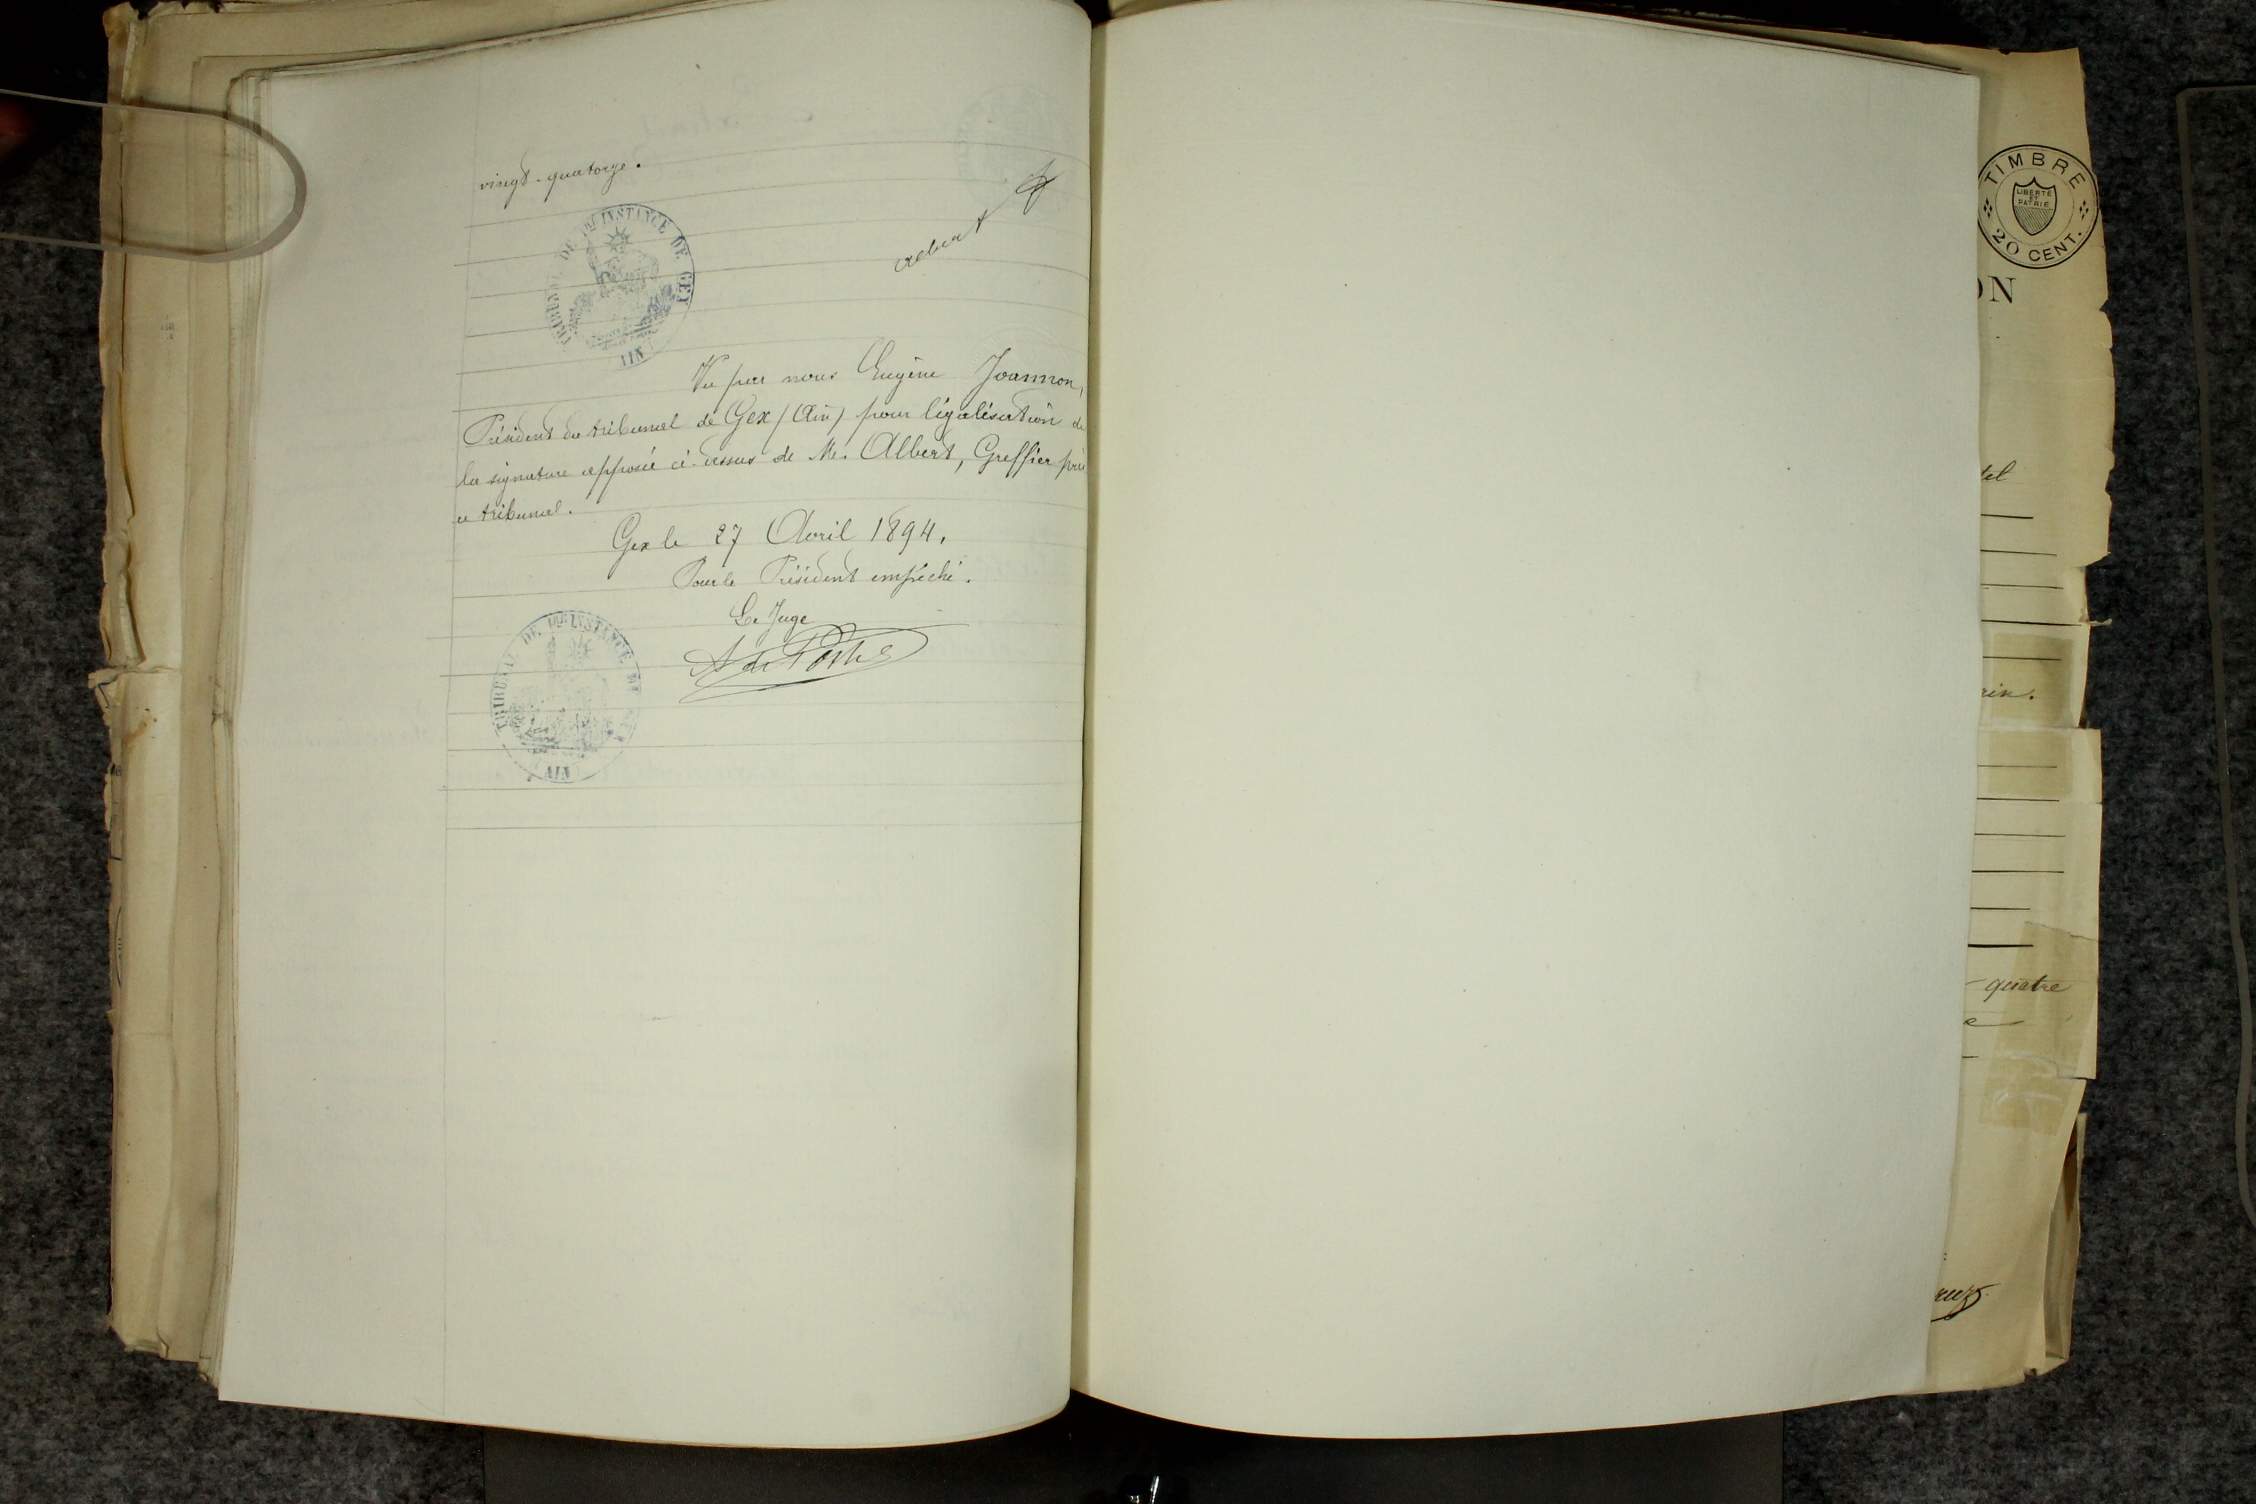 vingt-quatorze.
TRIBUNAL DE 1ère INSTANCE DE GEX
AIN
Albert
Vu par nous Eugène Joannon,
Président du tribunal de Gex (Ain) pour légalisation de
la signature apposée ci-dessus de Me. Albert, Greffier près
ce tribunal.
Gex le 27 Avril 1894.
Pour le Président empêché.
Le Juge
TRIBUNAL DE 1ère INSTANCE DE GEX
AIN
TIMBRE
LIBERTÉ
ET
PATRIE
20 CENT.
ON
tel
rin.
quatre